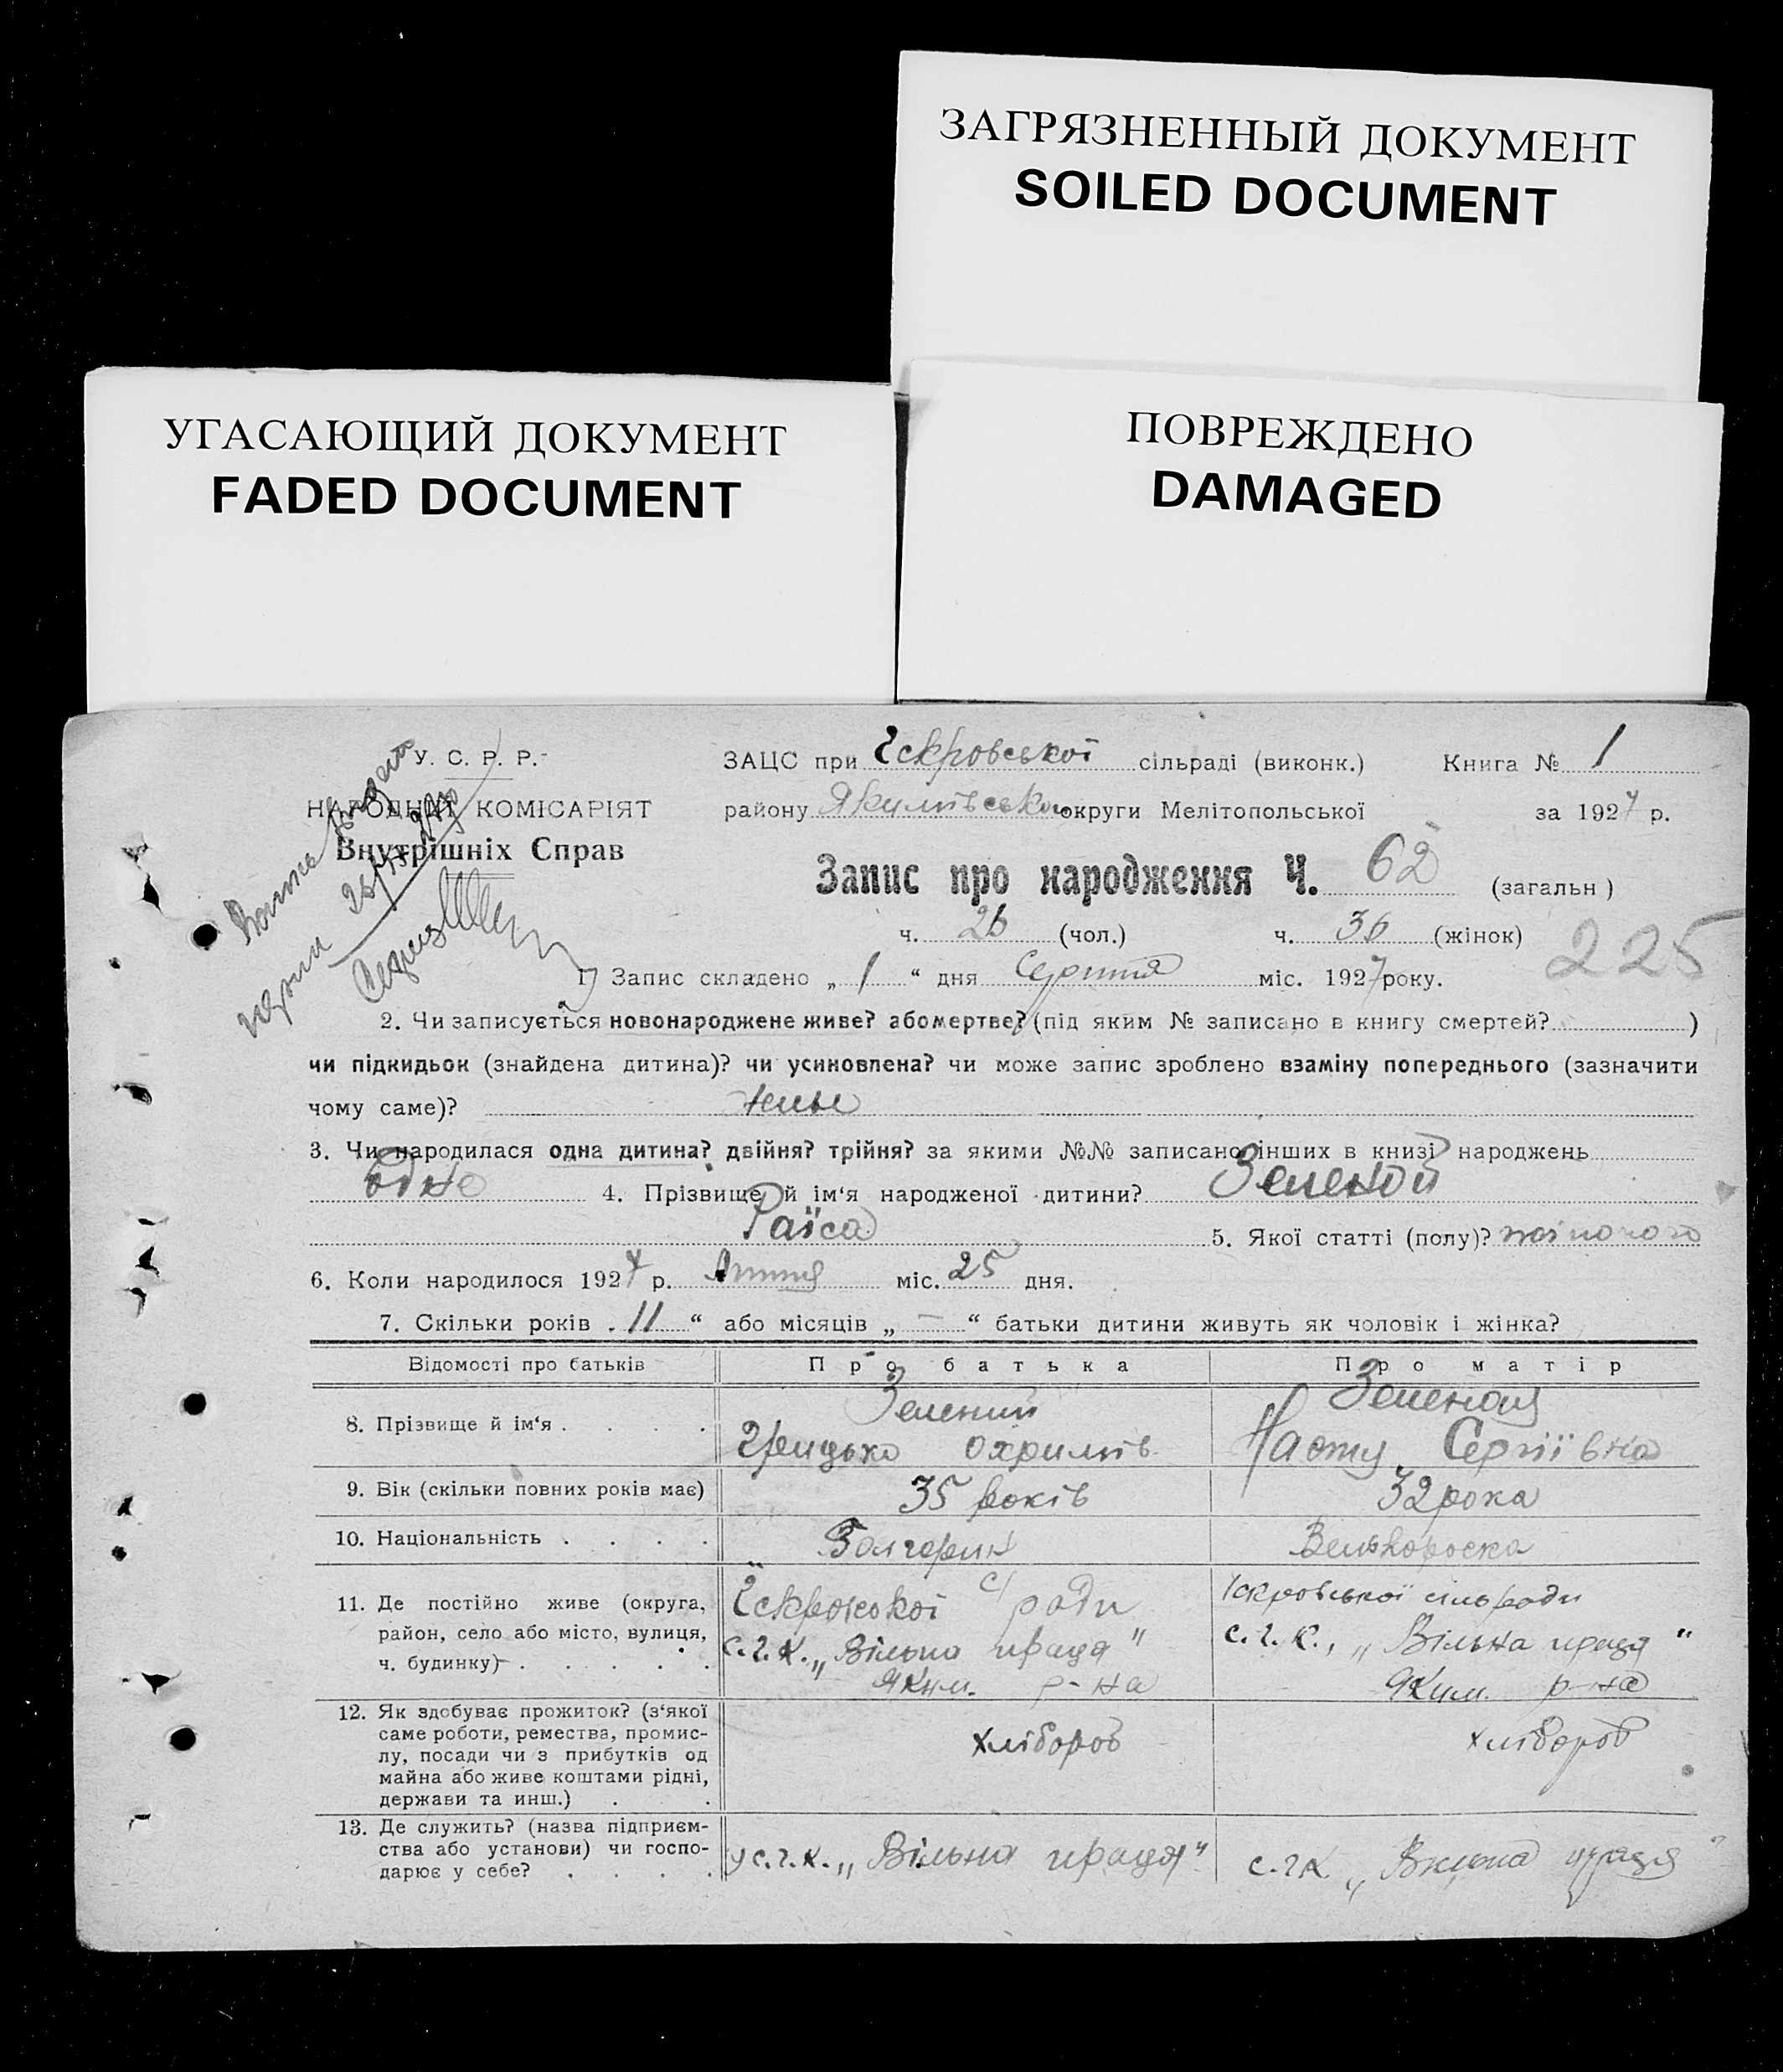 ЗАГРЯЗНЕННЫЙ ДОКУМЕНТ
SOILED DOCUMENT
УГАСАЮЩИЙ ДОКУМЕНТ
FADED DOCUMENT
ПОВРЕЖДЕНО
DAMAGED
У. С. Р. Р.
НАРОДНИЙ КОМІСАРІЯТ
Внутрішніх Справ
ЗАЦС при Іскровської сільраді (виконк.) Книга № 1
району Якимівської округи Мелітопольської за 1927 р.
Запис про народження Ч. 62 (загальн)
ч. 26 (чол.) ч. 36 (жінок)
225
1) Запис складено „ 1 “ дня Серпня міс. 1927 року.
2. Чи записується новонароджене живе? або мертве? (під яким № записано в книгу смертей? )
чи підкидьок (знайдена дитина)? чи усиновлена? чи може запис зроблено взаміну попереднього (зазначити
чому саме)?
3. Чи народилася одна дитина? двійня? трійня? за якими №№ записано інших в книзі народжень
Одно 4. Прізвище й ім‘я народженої дитини? Зеленой
Раїса 5. Якої статті (полу)? жіночого
6. Коли народилося 1927 р. Липня міс. 25 дня.
7. Скільки років „ 11 “ або місяців „ — “ батьки дитини живуть як чоловік і жінка?
Відомості про батьків Про батька Про матір
8. Прізвище й ім‘я Зелений Зеленой
Грицько Охримів Сергіївна
9. Вік (скільки повних років має) 35 років 32 рока
10. Національність Болгарин Велькороска
11. Де постійно живе (округа, Іскровської с/ ради Іскровської сільради
район, село або місто, вулиця, с.г.к. „Вільна праця" с.г.к., „Вільна праця"
ч. будинку) Яким. р-на Яким. р-на
12. Як здобуває прожиток? (з‘якої
саме роботи, ремества, промис-
лу, посади чи з прибутків од хлібороб хлібороб
майна або живе коштами рідні,
держави та инш.)
13. Де служить? (назва підприєм-
ства або установи) чи госпо- у с.г.к. „Вільна праця" с.г.к „Вільна праця"
дарює у себе?